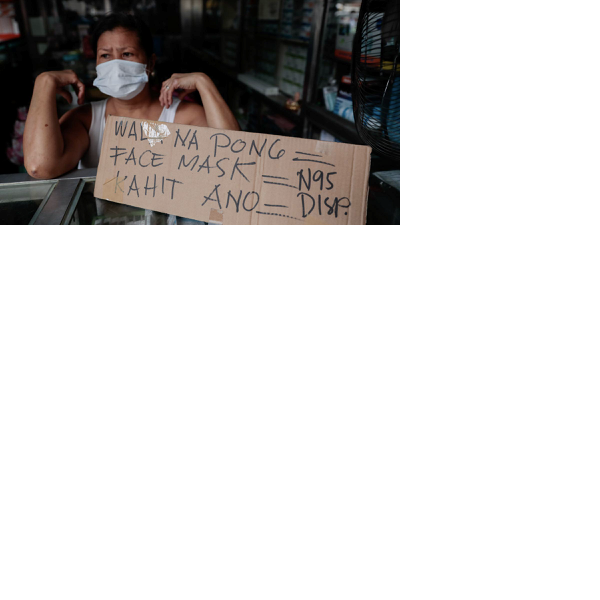 WALA NA PONG
FACE MASK = N95
KAHIT ANO = DISP.